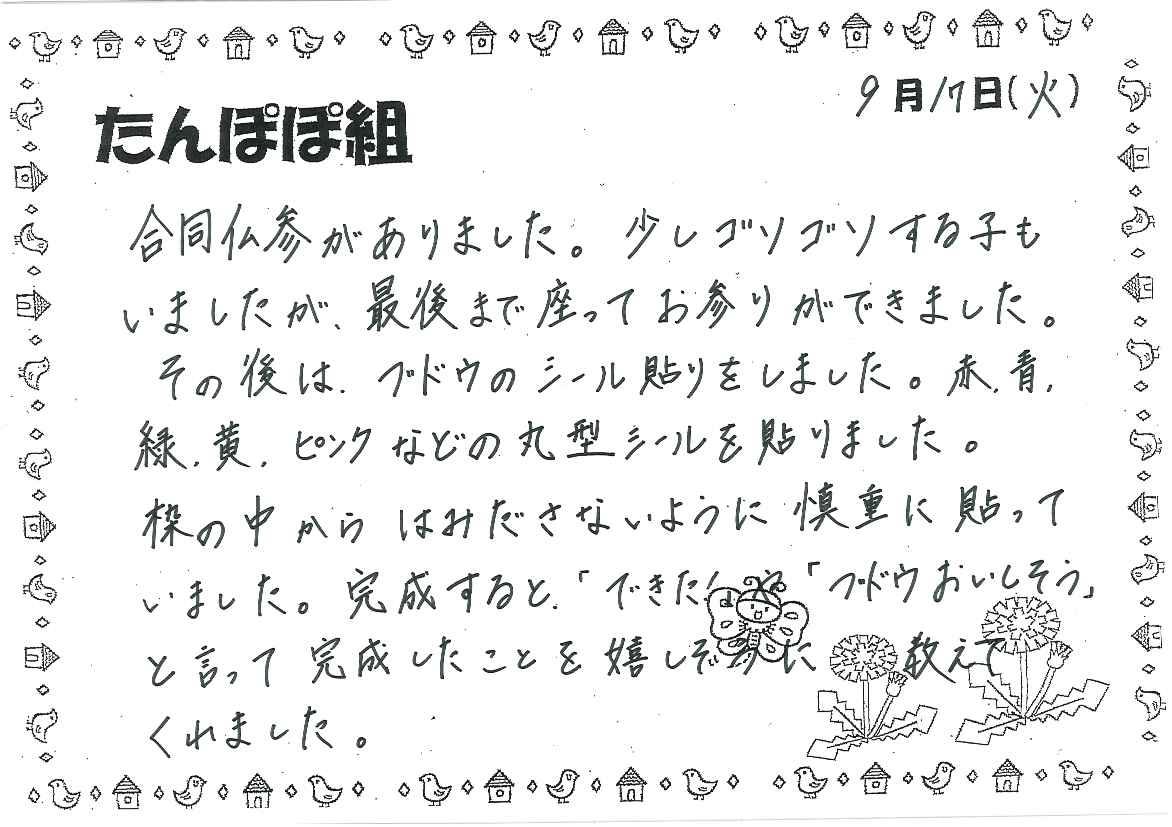 9月17日(火)
たんぽぽ組
合同仏参がありました。少しゴソゴソする子も
いましたが、最後まで座ってお参りができました。
その後は、ブドウのシール貼りをしました。赤、青、
緑、黄、ピンクなどの丸型シールを貼りました。
枠の中からはみださないように慎重に貼って
いました。完成すると、「できた!」や「ブドウおいしそう」
と言って完成したことを嬉しそうに教えて
くれました。